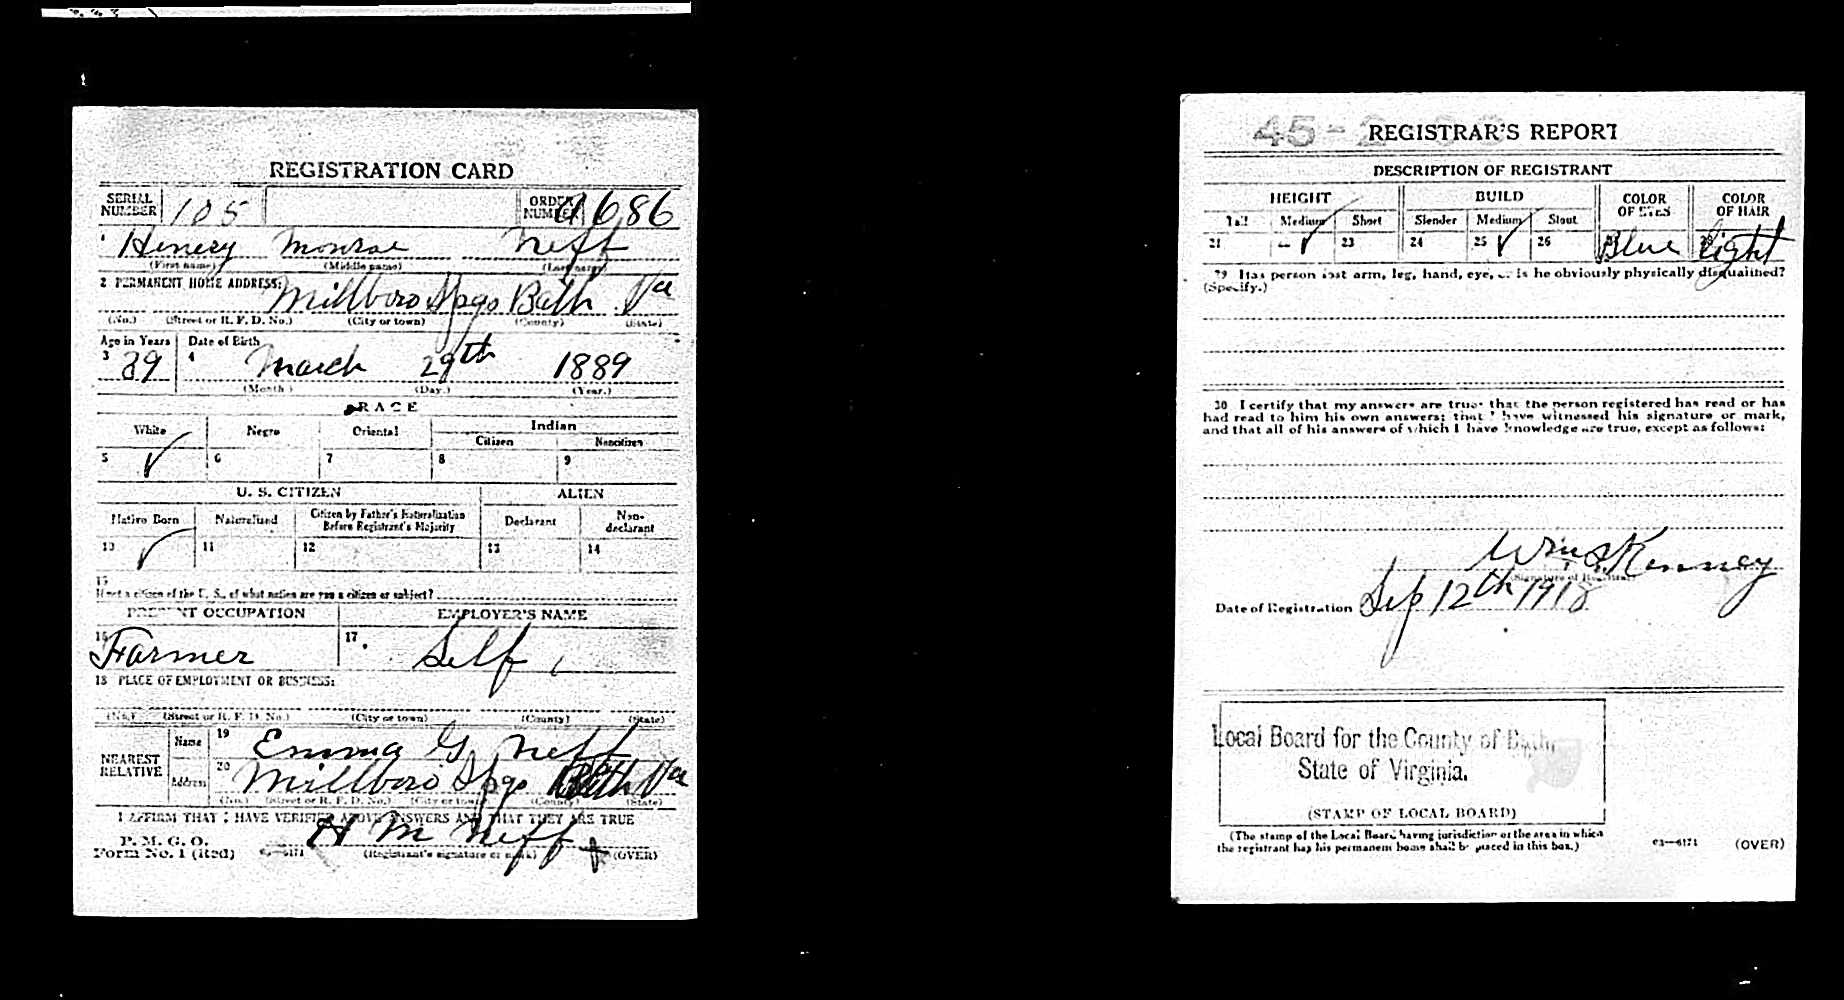 REGISTRATION CARD
SERIAL NUMBER 105 ORDER NUMBER A686
1 Henery Monroe Neff
(First name) (Middle name) (Last name)
2 PERMANENT HOME ADDRESS: Millboro Spgs Bath Va
(No.) (Street or R. F. D. No.) (City or town) (County) (State)
Age in Years Date of Birth
3 29 4 March 29th 1889
(Month.) (Day.) (Year.)
RACE
White Negro Oriental Indian
Citizen Noncitizen
5 ✓ 6 7 8 9
U. S. CITIZEN ALIEN
Native Born Naturalized Citizen by Father's Naturalization Before Registrant's Majority Declarant Non-declarant
10 ✓ 11 12 13 14
15
If not a citizen of the U. S., of what nation are you a citizen or subject?
PRESENT OCCUPATION EMPLOYER'S NAME
16 Farmer 17 Self
18 PLACE OF EMPLOYMENT OR BUSINESS:
(No.) (Street or R. F. D. No.) (City or town) (County) (State)
NEAREST RELATIVE Name 19 Emma G. Neff
Address 20 Millboro Spgs Bath Va
(No.) (Street or R. F. D. No.) (City or town) (County) (State)
I AFFIRM THAT I HAVE VERIFIED ABOVE ANSWERS AND THAT THEY ARE TRUE
P. M. G. O.
Form No. 1 (Red) 03—6171 H M Neff (Registrant's signature or mark) (OVER)
45-
REGISTRAR'S REPORT
DESCRIPTION OF REGISTRANT
HEIGHT BUILD COLOR OF EYES COLOR OF HAIR
Tall Medium Short Slender Medium Stout
21 22 ✓ 23 24 25 ✓ 26 27 Blue 28 light
29 Has person lost arm, leg, hand, eye, or is he obviously physically disqualified?
(Specify.)
30 I certify that my answers are true; that the person registered has read or has
had read to him his own answers; that I have witnessed his signature or mark,
and that all of his answers of which I have knowledge are true, except as follows:
Wm S. Kenney
(Signature of Registrar)
Date of Registration Sep 12th 1918
Local Board for the County of Bath,
State of Virginia.
(STAMP OF LOCAL BOARD)
(The stamp of the Local Board having jurisdiction of the area in which
the registrant has his permanent home shall be placed in this box.)
03—6171 (OVER)